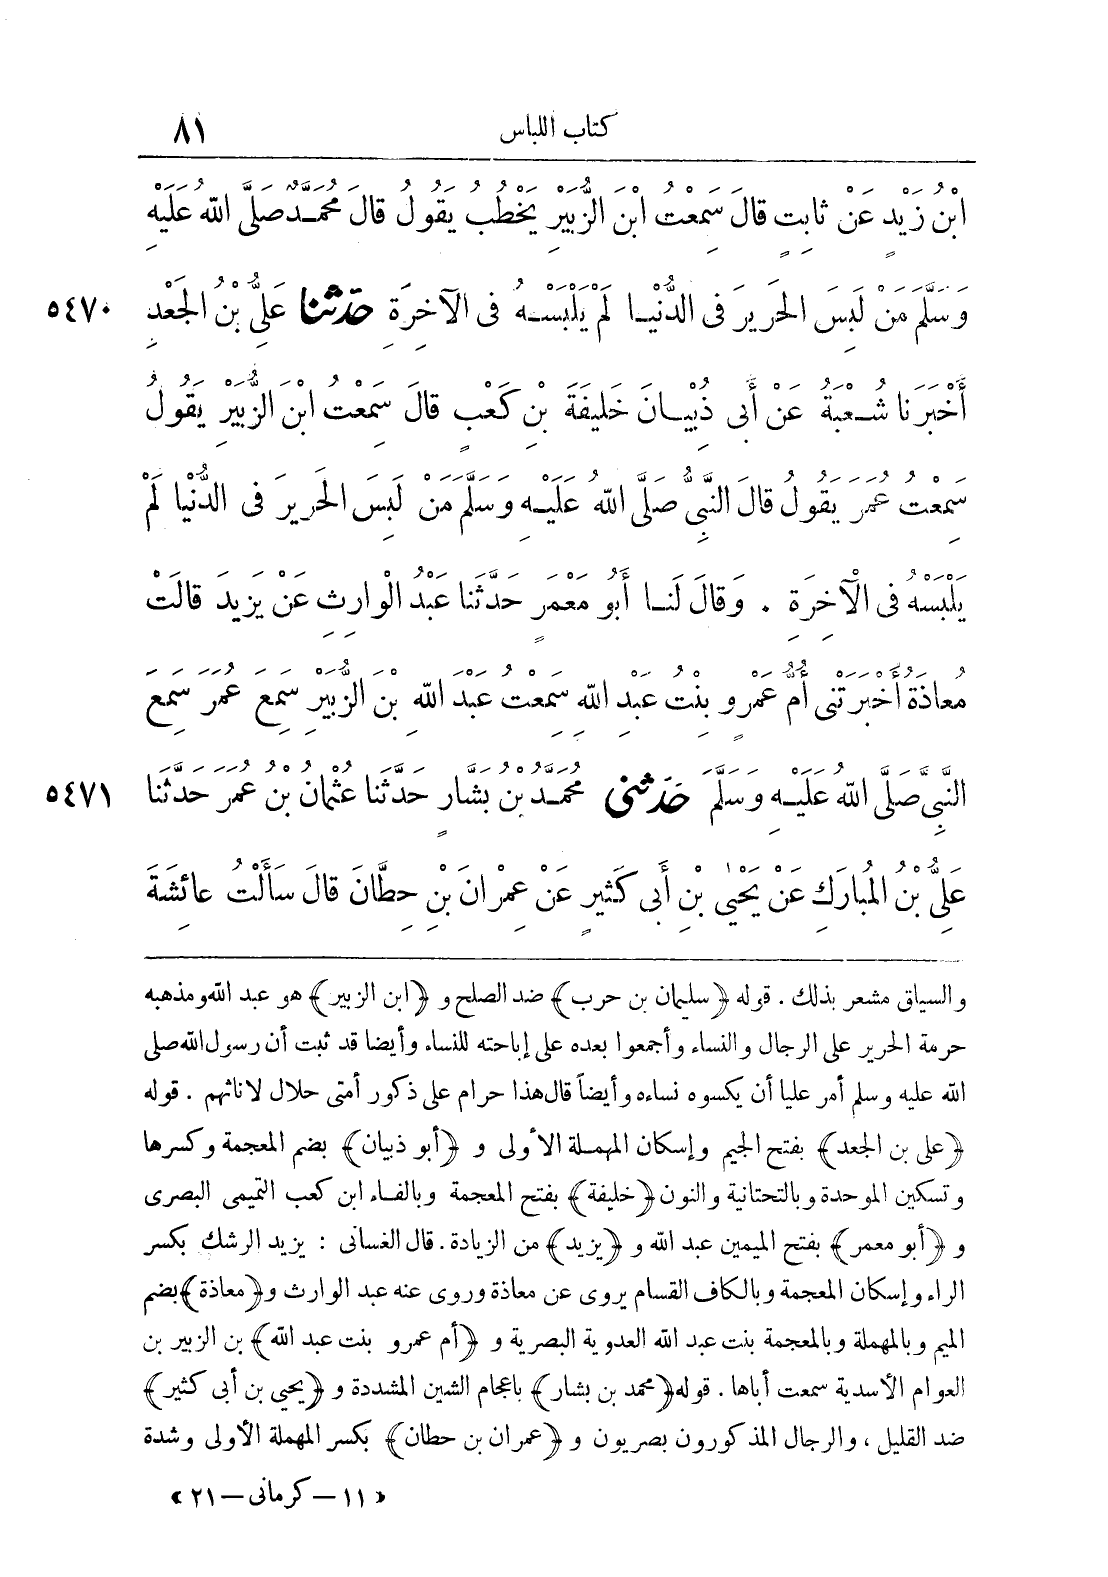 كتاب اللباس ٨١
ابْنُ زَيْدٍ عَنْ ثَابِتٍ قَالَ سَمِعْتُ ابْنَ الزُّبَيْرِ يَخْطُبُ يَقُولُ قَالَ مُحَمَّدٌ صَلَّى اللهُ عَلَيْهِ
وَسَلَّمَ مَنْ لَبِسَ الْحَرِيرَ فِى الدُّنْيَا لَمْ يَلْبَسْهُ فِى الْآخِرَةِ حَدَّثَنَا عَلِىُّ بْنُ الْجَعْدِ ٥٤٧٠
أَخْبَرَنَا شُعْبَةُ عَنْ أَبِى ذُبْيَانَ خَلِيفَةَ بْنِ كَعْبٍ قَالَ سَمِعْتُ ابْنَ الزُّبَيْرِ يَقُولُ
سَمِعْتُ عُمَرَ يَقُولُ قَالَ النَّبِىُّ صَلَّى اللهُ عَلَيْهِ وَسَلَّمَ مَنْ لَبِسَ الْحَرِيرَ فِى الدُّنْيَا لَمْ
يَلْبَسْهُ فِى الْآخِرَةِ . وَقَالَ لَنَا أَبُو مَعْمَرٍ حَدَّثَنَا عَبْدُ الْوَارِثِ عَنْ يَزِيدَ قَالَتْ
مُعَاذَةُ أَخْبَرَتْنِى أُمُّ عَمْرٍو بِنْتُ عَبْدِ اللهِ سَمِعْتُ عَبْدَ اللهِ بْنَ الزُّبَيْرِ سَمِعَ عُمَرَ سَمِعَ
النَّبِىَّ صَلَّى اللهُ عَلَيْهِ وَسَلَّمَ حَدَّثَنِى مُحَمَّدُ بْنُ بَشَّارٍ حَدَّثَنَا عُثْمَانُ بْنُ عُمَرَ حَدَّثَنَا ٥٤٧١
عَلِىُّ بْنُ الْمُبَارَكِ عَنْ يَحْيَى بْنِ أَبِى كَثِيرٍ عَنْ عِمْرَانَ بْنِ حِطَّانَ قَالَ سَأَلْتُ عَائِشَةَ
والسياق مشعر بذلك . قوله ﴿سليمان بن حرب﴾ ضد الصلح و ﴿ابن الزبير﴾ هو عبد الله ومذهبه
حرمة الحرير على الرجال والنساء وأجمعوا بعده على إباحته للنساء وأيضا قد ثبت أن رسول الله صلى
الله عليه وسلم أمر عليا أن يكسوه نساءه وأيضاً قال هذا حرام على ذكور أمتى حلال لاناثهم . قوله
﴿على بن الجعد﴾ بفتح الجيم وإسكان المهملة الأولى و ﴿أبو ذبيان﴾ بضم المعجمة وكسرها
وتسكين الموحدة وبالتحتانية والنون ﴿خليفة﴾ بفتح المعجمة وبالفاء ابن كعب التميمى البصرى
و ﴿أبو معمر﴾ بفتح الميمين عبد الله و ﴿يزيد﴾ من الزيادة . قال الغسانى : يزيد الرشك بكسر
الراء وإسكان المعجمة وبالكاف القسام يروى عن معاذة وروى عنه عبد الوارث و ﴿معاذة﴾ بضم
الميم وبالمهملة وبالمعجمة بنت عبد الله العدوية البصرية و ﴿أم عمرو بنت عبد الله﴾ بن الزبير بن
العوام الأسدية سمعت أباها . قوله ﴿محمد بن بشار﴾ باعجام الشين المشددة و ﴿يحيى بن أبى كثير﴾
ضد القليل ، والرجال المذكورون بصريون و ﴿عمران بن حطان﴾ بكسر المهملة الأولى وشدة
« ١١ – كرمانى – ٢١ »